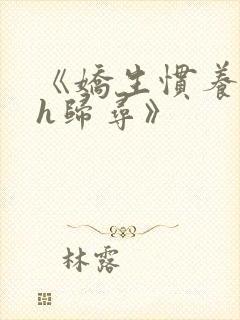 《嬌生慣養
h歸尋》
林露